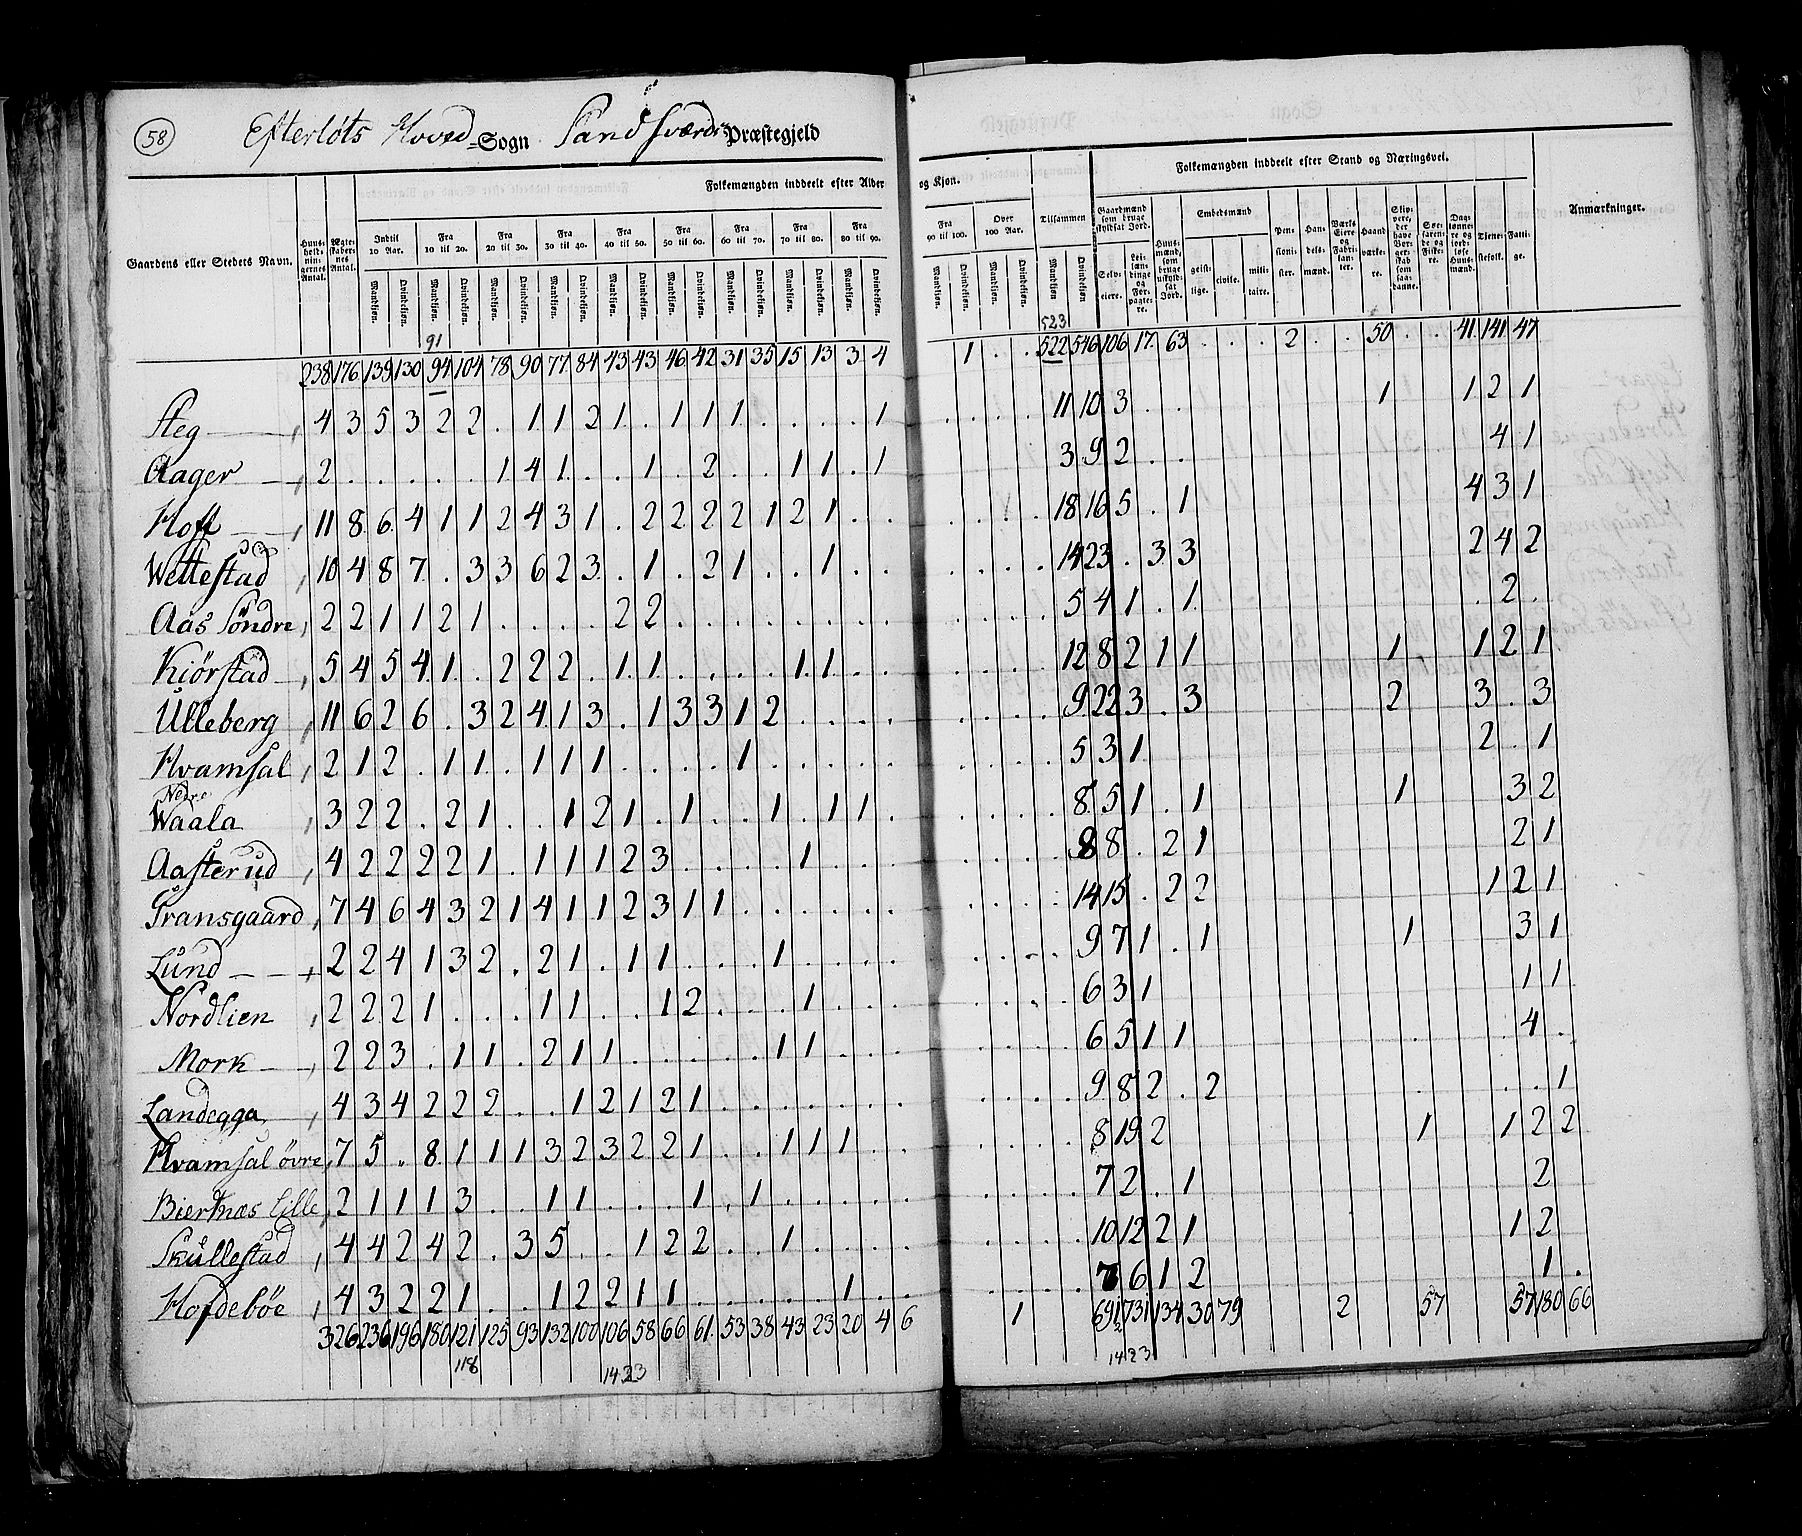 58 Efterløts Hoved-Sogn Sandsværds Præstegjeld
Folkemængden inddeelt efter Alder og Kjøn.
Folkemængden inddeelt efter Stand og Næringsvei.
Gaardens eller Stedets Navn.
Huusholdningernes Antal.
Ægtefolkenes Antal.
Indtil 10 Aar.
Fra 10 til 20.
Fra 20 til 30.
Fra 30 til 40.
Fra 40 til 50.
Fra 50 til 60.
Fra 60 til 70.
Fra 70 til 80.
Fra 80 til 90.
Fra 90 til 100.
Over 100 Aar.
Tilsammen
Mandkiøn. Qvindekiøn.
Gaardmænd som bruge skyldsat Jord.
Selveiere.
Leilændinge og Forpagtere.
Huusmænd, som bruge uskyldsat Jord.
Embedsmænd
geistlige. civile. militaire.
Pensionister.
Handelsmænd.
Værks Eiere og Fabrikanter.
Haandværkere.
Skippere, der have Borgerskab som saadanne.
Søefarende og Fiskere.
Daglønnere og jordløse Huusmænd.
Tjenestefolk.
Fattige.
Anmærkninger.
91 523
238 176 139 130 94 104 78 90 77 84 43 43 46 42 31 35 15 13 3 4 . 1 . . 522 546 106 17 63 . . . 2 . . 50 . . 41 141 47
Steg 4 3 5 3 2 2 . 1 1 2 1 . 1 1 1 . . . . 1 . . . . 11 10 3 . . 1 1 2 1
Aager 2 . . . . . 1 4 1 . . 1 . 2 . . 1 1 . 1 . . . . 3 9 2 . . 4 1
Hoft 11 8 6 4 1 1 2 4 3 1 . 2 2 2 2 1 2 1 . . . . . . 18 16 5 . 1 4 3 1
Wettestad 10 4 8 7 . 3 3 6 2 3 . 1 . 2 1 . . 1 . . . . . . 14 23 . 3 3 2 4 2
Aas Söndre 2 2 1 1 2 1 . . . . 2 2 . . . . . . . . . . . . 5 4 1 . 1 . 2 .
Kiörstad 5 4 5 4 1 . 2 2 2 . 1 1 . . . . 1 1 . . . . . . 12 8 2 1 1 1 1 2 1
Ulleberg 11 6 2 6 . 3 2 4 1 3 . 1 3 3 1 2 . . . . . . . . 9 22 3 . 3 2 3 . 3
Hvamsal 2 1 2 . 1 1 . 1 1 1 . . . . 1 . . . . . . . . . 5 3 1 2 . 1
Nedre
Waala 3 2 2 . 2 1 . . 1 2 1 . 1 . . 1 . 1 1 . . . . . 8 5 1 . 1 1 3 2
Aasterud 4 2 2 2 2 1 . 1 1 1 2 3 . . . . 1 . . . . . . . 8 8 . 2 1 2 1
Gransgaard 7 4 6 4 3 2 1 4 1 1 2 3 1 1 . . . . . . . . . . 14 15 . 2 2 1 2 1
Lund 2 2 4 1 3 2 . 2 1 . 1 1 . . . 1 . . . . . . . . 9 7 1 . 1 1 3 1
Nordlien 2 2 2 1 . . . 1 1 . . 1 2 . . . 1 . . . . . . . 6 3 1 1 1
Mork 2 2 3 . 1 1 . 2 1 1 . . . . . 1 1 . . . . . . . 6 5 1 1 . 4 .
Landegga 4 3 4 2 2 2 . . 1 2 1 2 1 . . . . . . . . . . . 9 8 2 . 2 . . . 1
Hvamsal övre 7 5 . 8 1 1 1 3 2 3 2 2 1 . . 1 1 1 . . . . . . 8 19 2 1 1 2 2
Biertnæs lille 2 1 1 1 3 . . 1 1 . . . 1 . 1 . . . . . . . . . 7 2 . 1 2
Skullestad 4 4 2 4 2 . 3 5 . . 1 2 2 . . 1 . . . . . . . . 10 12 2 1 1 2
Hofdeböe 4 3 2 2 1 . . 1 2 2 1 1 . . . . . 1 . . . . . . 7 6 1 2 1 .
326 236 196 180 121 125 93 132 100 106 58 66 61 53 38 43 23 20 4 6 1 691 731 134 30 79 2 57 57 180 66
118 1423 1423